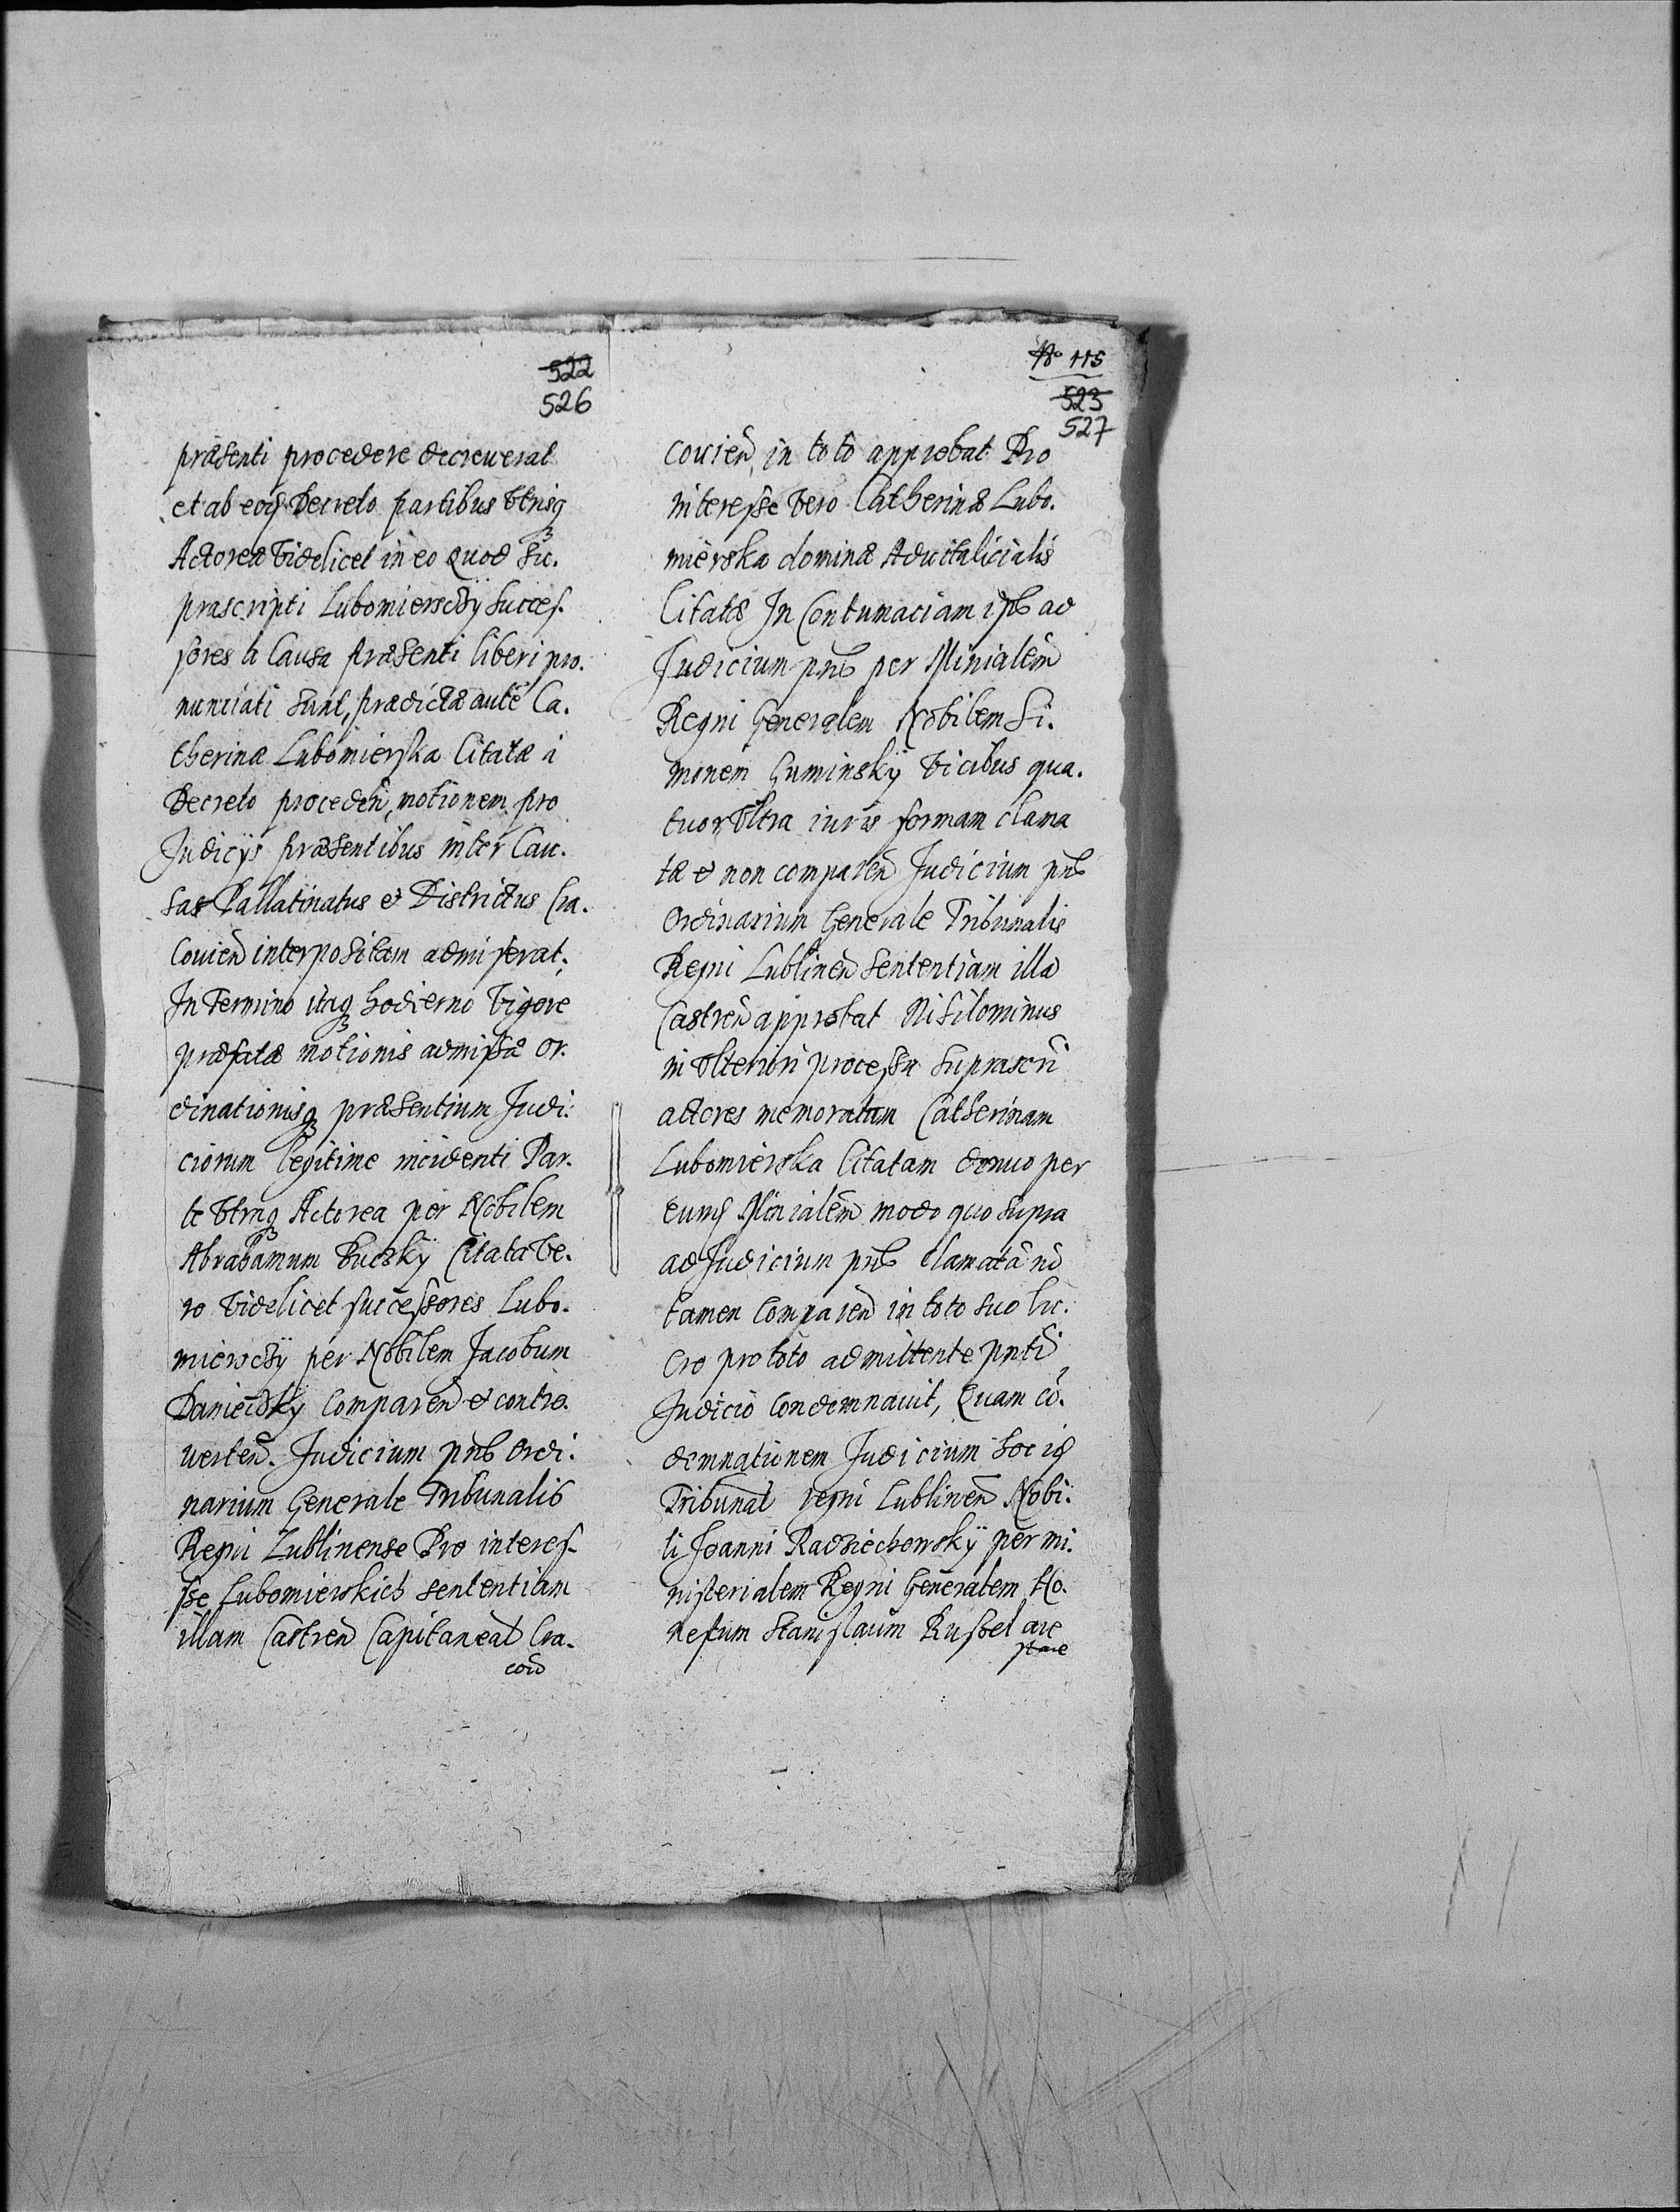 522
526
præsenti procedere decreuerat
et ab eoq̃ Decreto partibus vtrisq3
Actorea videlicet in eo quod suc.
præscripti Lubomierscÿ succes-
sores a Causa præsenti liberi pro.
nunciati sunt, prædictæ autē Ca.
therinæ Lubomierska Citatæ à
Decreto proceden̄, motionem pro
Judicÿs præsentibus inter Cau.
sas Pallatinatus et Districtus Cra.
couien̄ interpositam admiserat;
In Termino itaq3 hodierno vigore
præfatæ motionis admissæ or.
dinationisq3 præsentium Judi.
ciorum legitime incidenti Par.
te vtraq3 Actorea per Nobilem
Abrahamum Pucskÿ Citata ve.
ro videlicet successores Lubo.
mierscÿ per Nobilem Jacobum
Danieczkÿ comparen̄ et contro.
uerten̄. Judicium pn̄s Ordi.
narium Generale Tribunalis
Regni Lublinense Pro interes-
sse Lubomierskich sententiam
illam Castren̄ Capitaneal̄ Cra.
coui̅
No 115
523
527
couien̄ in toto approbat Pro
interesse vero Catherinæ Lubo.
mierska dominæ Aduitalicialis
Citatæ In Contumaciam ips̄ ad
Judicium pn̄s per Min̄ialem̄
Regni Generalem Nobilem Si.
monem Guminskÿ vicibus qua.
tuor vltra iuris formam clama
tæ et non comparen̄ Judicium pn̄s
Ordinarium Generale Tribunalis
Regni Lublinen̄ sententiam illā
Castren̄ approbat Nihilominus
in vlteriori processu suprascri̅
actores memoratam Catherinam
Lubomierska Citatam denuo per
eumq̃ Min̄ialem̄ modo quo supra
ad Judicium pn̄s clamatā nō
tamen comparen̄ in toto suo luc.
cro pro toto admittente pn̄ti
Judicio condemnauit, Quam cō.
demnationem Judicium hoc id̃
Tribunal̄ regni Lublinen̄ Nobi.
li Joanni Radziechowskÿ per mi.
nisterialem Regni Generalem Ho.
nestum Stanislaum Russel are
stare